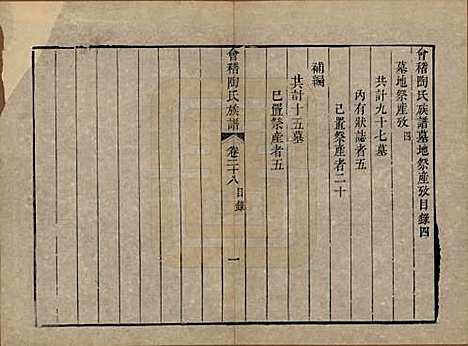 會稽陶氏族譜墓地祭產攷目錄四
墓地祭產攷四
共計九十七墓
內有狀誌者五
已置祭產者二十
補編
共計十五墓
已置祭產者五
會稽陶氏族譜 卷二十八 目錄 一